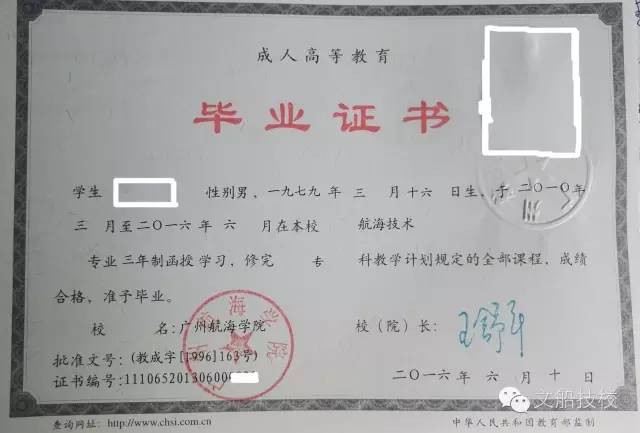 成人高等教育
毕业证书
学生 性别男,一九七九年三月十六日生,于二〇一〇年
三月至二〇一六年六月在本校 航海技术
专业三年制函授学习,修完 专 科教学计划规定的全部课程,成绩
合格,准予毕业。
校 名:广州航海学院 校(院)长:
批准文号:(教成字[1996]163号)
证书编号:111065201306000
二〇一六年六月十日
查询网址:http://www.chsi.com.cn 中华人民共和国教育部监制
文船技校